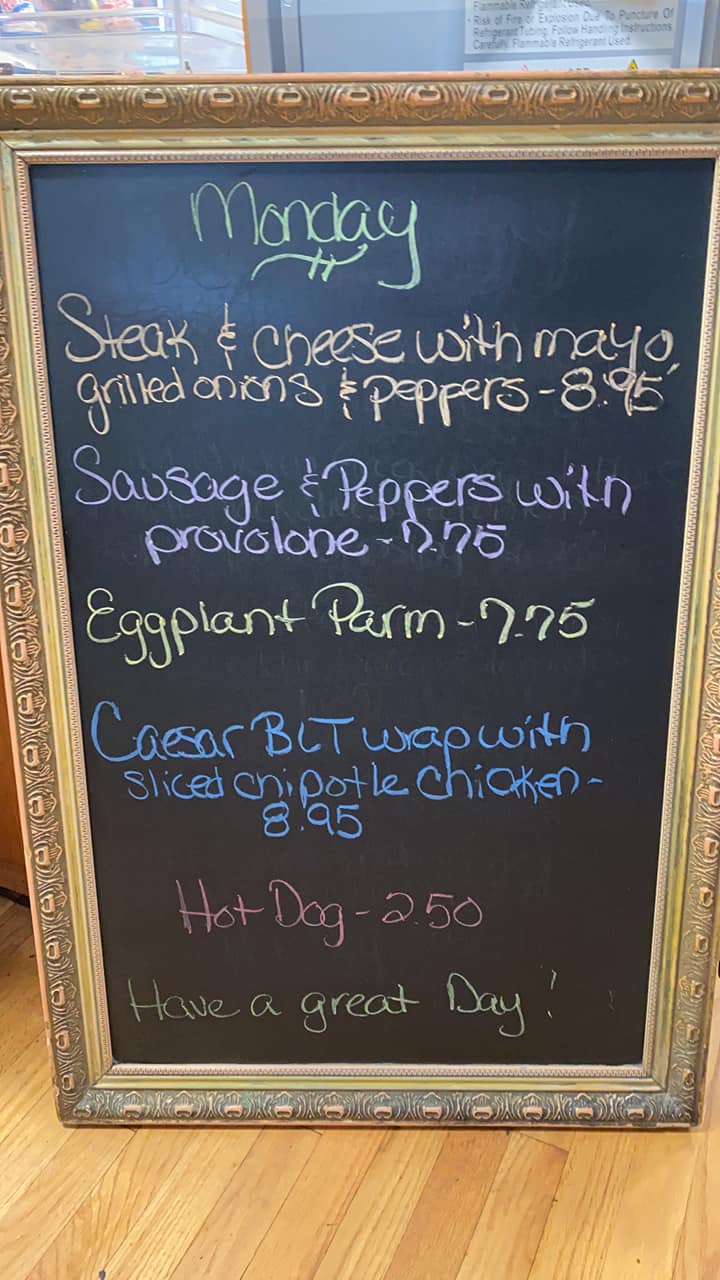 Flammable Refrigerant Used.
Risk of Fire or Explosion Due To Puncture Of
Refrigerant Tubing. Follow Handling Instructions
Carefully. Flammable Refrigerant Used.
Monday
Steak & cheese with mayo,
grilled onions & peppers - 8.95
Sausage & Peppers with
provolone - 7.75
Eggplant Parm - 7.75
Caesar BLT wrap with
sliced chipotle chicken -
8.95
Hot Dog - 2.50
Have a great Day!